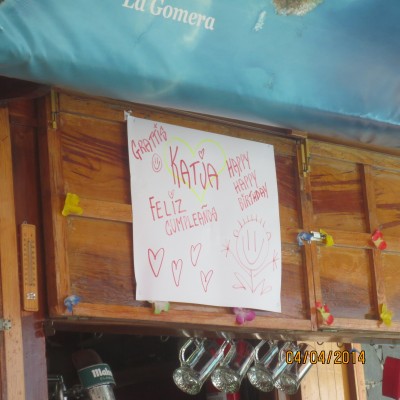 La Gomera
GRATTIS
KATJA
HAPPY
HAPPY
BIRTHDAY
FELIZ
CUMPLEANOS
04/04/2014